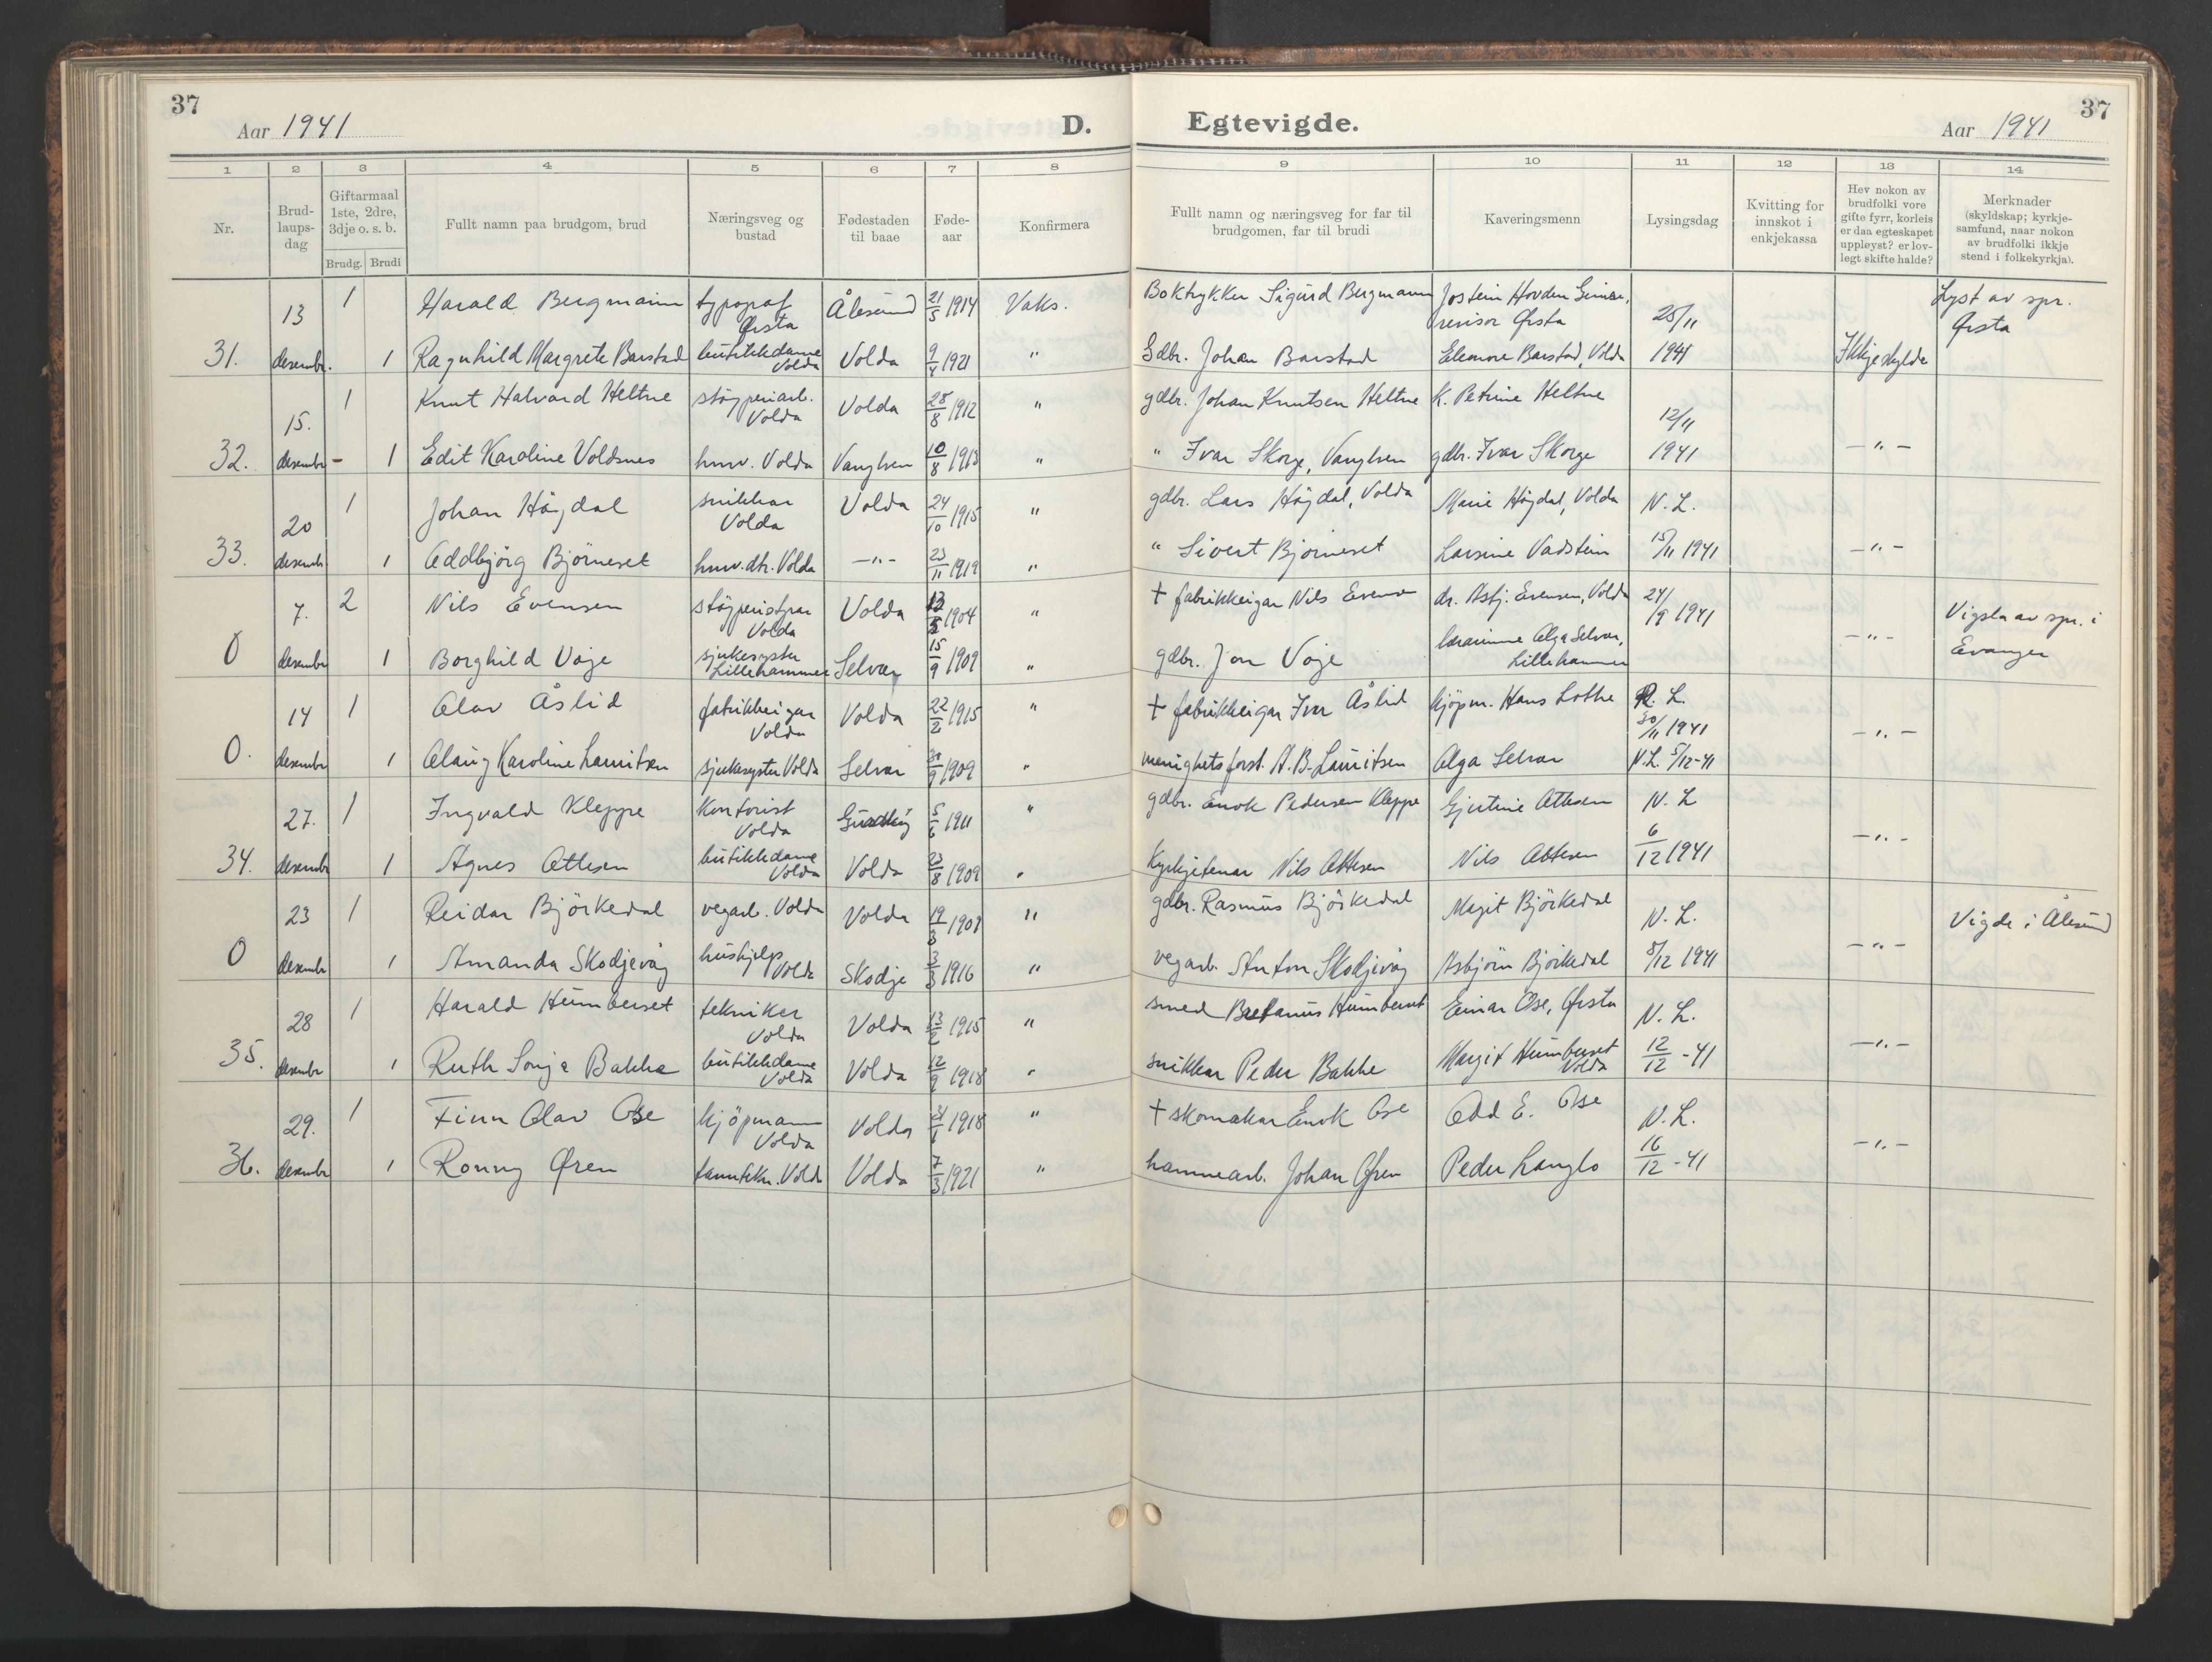 37
Aar 1941
D.
Egtevigde.
37
Aar 1941
1 2 3 4 5 6 7 8 9 10 11 12 13 14
Nr.
Brud-
laups-
dag
Giftarmaal
1ste, 2dre,
3dje o. s. b.
Brudg. Brudi
Fullt namn paa brudgom, brud
Næringsveg og
bustad
Fødestaden
til baae
Føde-
aar
Konfirmera
Fullt namn og næringsveg for far til
brudgomen, far til brudi
Kaveringsmenn
Lysingsdag
Kvitting for
innskot i
enkjekassa
Hev nokon av
brudfolki vore
gifte fyrr, korleis
er daa egteskapet
uppløyst? er lov-
legt skifte halde?
Merknader
(skyldskap; kyrkje-
samfund, naar nokon
av brudfolki ikkje
stend i folkekyrkja).
13 1 Harald Bergmann typograf Ørsta Ålesund 21/5 1914 Vaks. Boktrykker Sigurd Bergmann Jostein Hovden revisor Ørsta 25/11 Lyst av spr. Ørsta
31. desembr. 1 Ragnhild Margrete Barstad butikkdame Volda Volda 9/4 1921 " Gdbr. Johan Barstad Eleonore Barstad, Volda 1941 Ikkje skylde
15. 1 Knut Halvard Heltne støyperiarb. Volda Volda 28/8 1912 " gdbr. Johan Knutsen Heltne K. Petrine Heltne 12/11
32. desembr - 1 Edit Karoline Voldsnes husv. Volda Vanylven 10/8 1913 " " Ivar Skorge, Vanylven gdbr. Ivar Skorge 1941 - " -
20 1 Johan Høydal snikkar Volda Volda 24/10 1915 " gdbr. Lars Høydal, Volda Marie Høydal, Volda N. L.
33. desembr 1 Oddbjørg Bjørneset husv. dtr. Volda - " - 23/11 1919 " " Sivert Bjørneset Larsine Vadstein 15/11 1941 - " -
7. 2 Nils Evensen Volda Volda 1904 " + fabrikkeigar Nils Evensen dr. Asbj. Evensen, Volda 24/9 1941 Vigsla av spr. i
0 desembr 1 Borghild Voje sjukesyster Lillehammer Selvær 15/9 1909 " gdbr. Jon Voje lærarinne Olga Selvær, Lillehammer - " - Evanger
14 1 Olav Åslid fabrikkeigar Volda Volda 22/2 1915 " + fabrikkeigar Ivar Åslid kjøpm. Hans Lothe R. L. 30/11 1941
0. desembr 1 Olaug Karoline Lauritsen sjukesyster Volda Selvær 20/9 1909 " menighetsforst. A. B. Lauritsen Olga Selvær N. L. 5/12-41 - " -
27. 1 Ingvald Kleppe kontorist Volda Gurskøy 5/6 1911 " gdbr. Enok Pedersen Kleppe Gjertine Ottesen N. L.
34. desembr 1 Agnes Ottesen butikkdame Volda Volda 23/8 1909 " Kyrkjetenar Nils Ottesen Nils Ottesen 6/12 1941 - " -
23 1 Reidar Bjørkedal vegarb. Volda Volda 19/3 1908 " gdbr. Rasmus Bjørkedal Magit Bjørkedal N. L. Vigde i Ålesund
0 desembr 1 Amanda Skodjevåg hushjelp Volda Skodje 3/3 1916 " vegarb. Anton Skodjevåg Asbjørn Bjørkedal 8/12 1941 - " -
28 1 Harald Humberset tekniker Volda Volda 13/2 1915 " smed Bretanus Humberset Einar Ose, Ørsta N. L.
35. desembr 1 Ruth Sonja Bakke butikkdame Volda Volda 12/9 1918 " snikkar Peder Bakke Margit Humberset Volda 12/12 -41 - " -
29. 1 Finn Olav Ose kjøpmann Volda Volda 1918 " + skomakar Enok Ose Odd E. Ose N. L.
36. desembr 1 Ronny Øren tanntekn. Volda Volda 7/3 1921 " hamnearb. Johan Øren Peder Langlo 16/12 -41 - " -